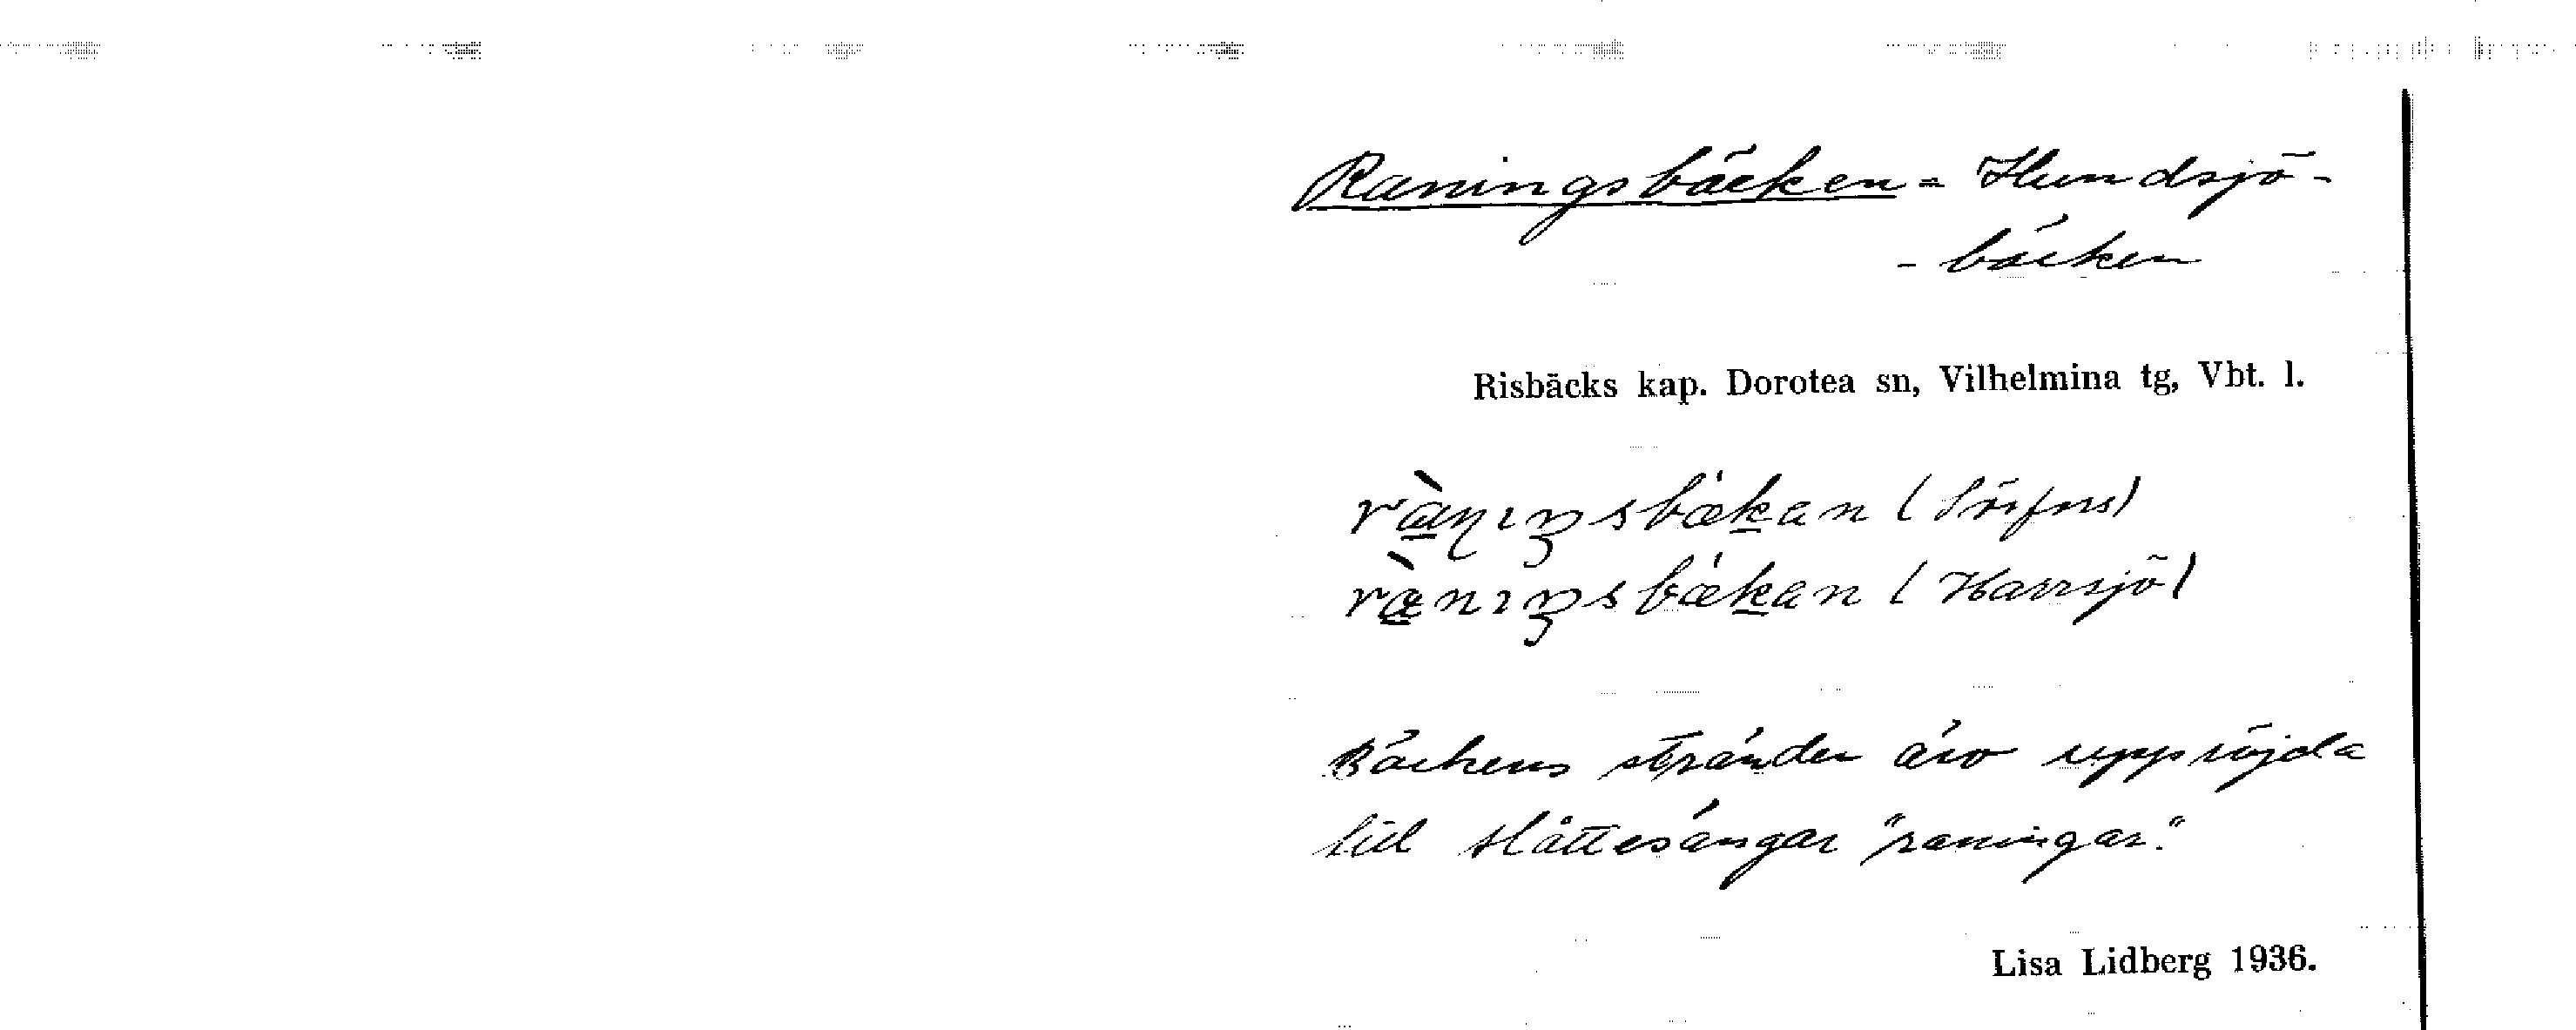 Raningsbäcken = Hundsjö-
- bäcken
Risbäcks kap. Dorotea sn, Vilhelmina tg, Vbt. l.
(Harrsjö)
Bäckens stränder äro uppröjda
till slåttesängar "raningar".
Lisa Lidberg 1936.